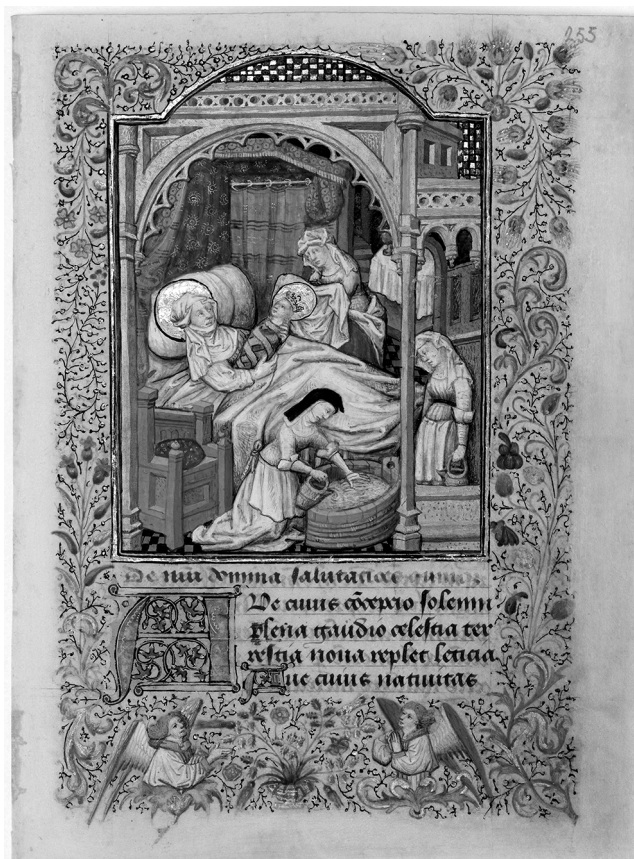 255
De nra domina salutacões
AVe cuius cõcepcio solemni
plena gaudio celestia ter
restia noua replet leticia
Aue cuius natiuitas